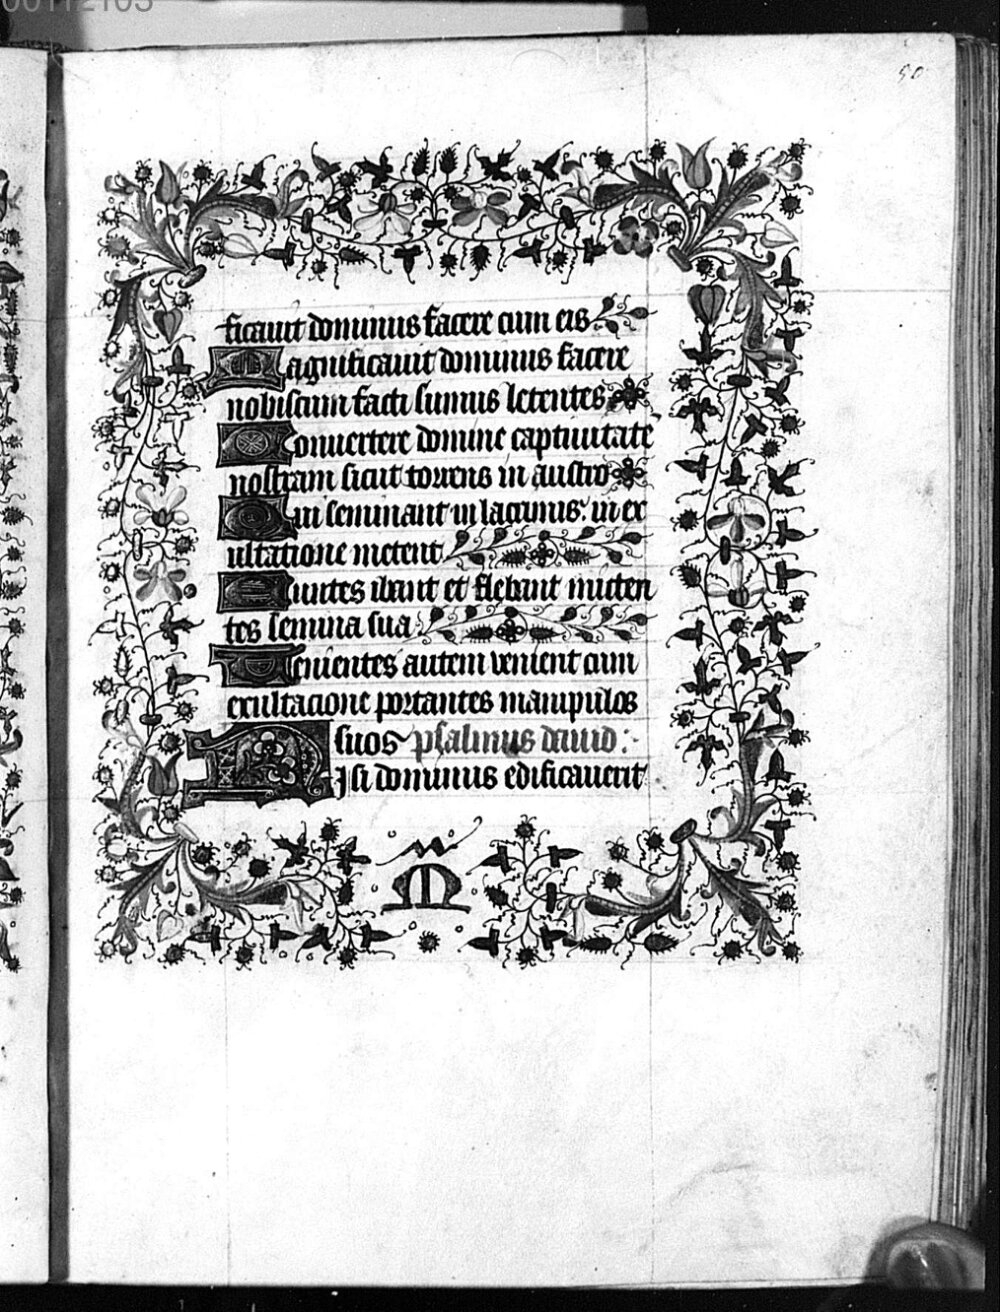 00112103
50
ficauit dominus facere cum eis
Magnificauit dominus facere
nobiscum facti sumus letentes
Conuertere domine captiuitatē
nostram sicut torrens in austro
Qui seminant in lacrimis: in ex
ultatione metent
Euntes ibant et flebant mitten
tes semina sua:
Venientes autem venient cum
exultacione portantes manipulos
suos psalmus dauid:
Nisi dominus edificauerit
M